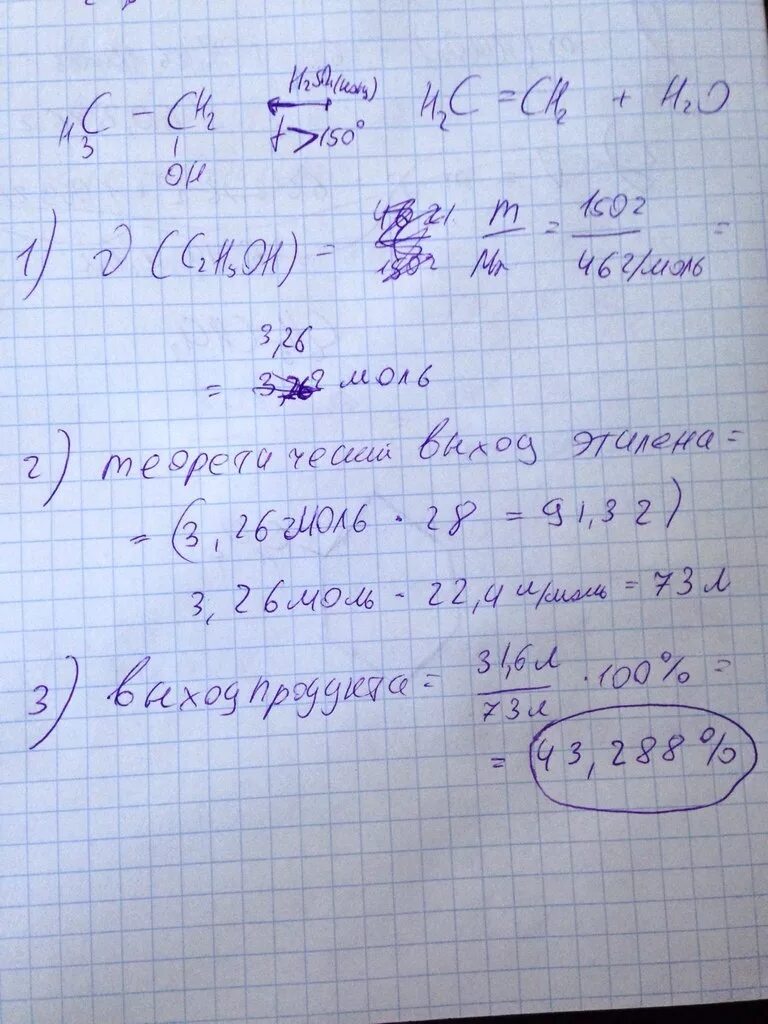 H₂SO₄(конц)
H₃C – CH₂ ← H₂C = CH₂ + H₂O
t > 150°
OH
1) ν (C₂H₅OH) = m/Mr = 150 г/46 г/моль =
3,26
= моль
2) теоретический выход этилена =
= (3,26 моль · 28 = 91,3 г)
3,26 моль · 22,4 л/моль = 73 л
3) выход продукта = 31,6 л/73 л · 100% =
= 43,288%